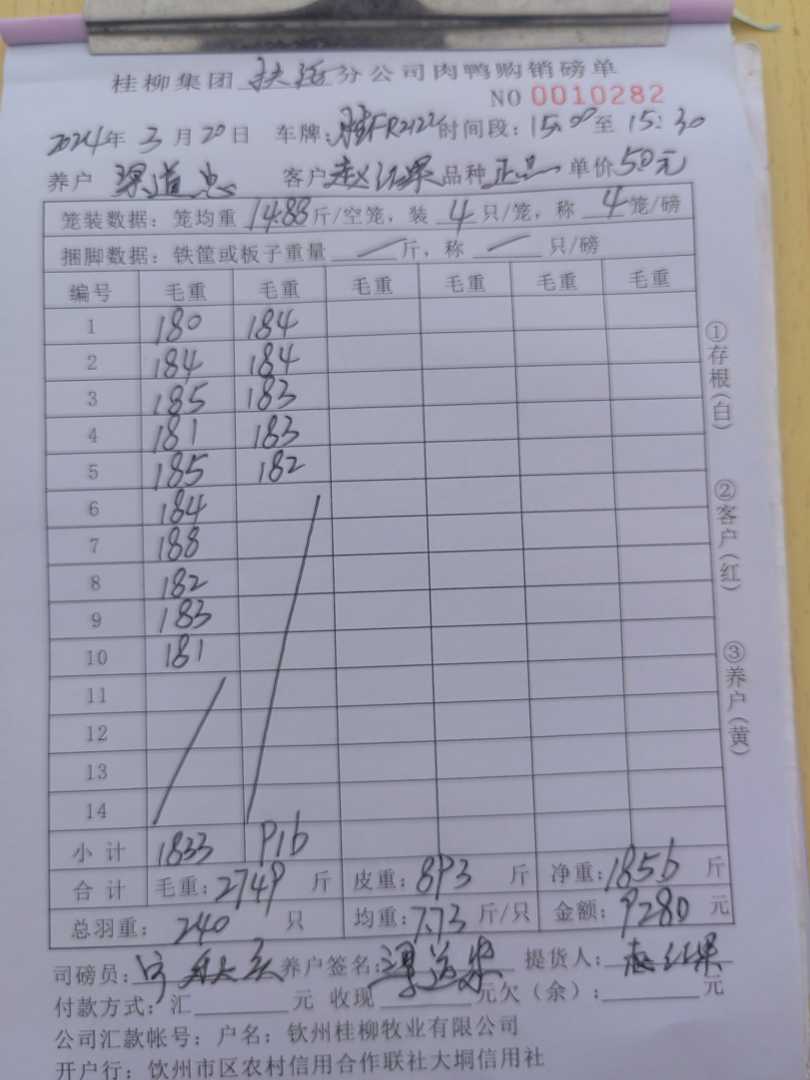 桂柳集团 分公司肉鸭购销磅单
NO 0010282
2024年 3月 20日 车牌: R2122 时间段: 15:00至 15:30
养户 道忠 客户 赵红果 品种 正品 单价 5.0元
笼装数据: 笼均重 14.88 斤/空笼, 装 4 只/笼, 称 4 笼/磅
捆脚数据: 铁筐或板子重量 — 斤, 称 — 只/磅
编号 毛重 毛重 毛重 毛重 毛重 毛重
1 180 184
2 184 184
3 185 183
4 181 183
5 185 182
6 184
7 188
8 182
9 183
10 181
11
12
13
14
小计 1833 916
合计 毛重: 2749 斤 皮重: 893 斤 净重: 1856 斤
总羽重: 240 只 均重: 7.73 斤/只 金额: 9280 元
司磅员: 养户签名: 提货人: 赵红果
付款方式: 汇 元 收现 元欠(余): 元
公司汇款帐号: 户名: 钦州桂柳牧业有限公司
开户行: 钦州市区农村信用合作联社大垌信用社
①存根(白)
②客户(红)
③养户(黄)